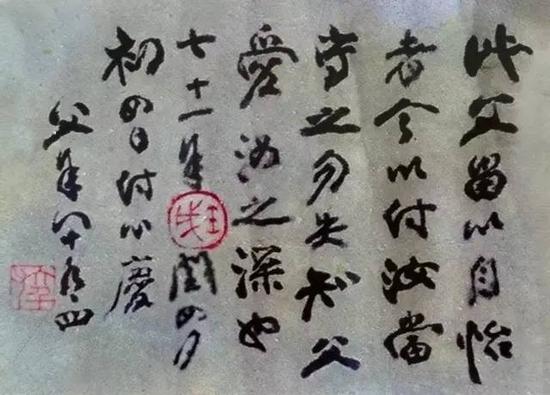 此父留以自怡
者今以付汝當
守之勿失知父
愛汝之深也
七十一年閏四月
初四日付慶
父年八十有四